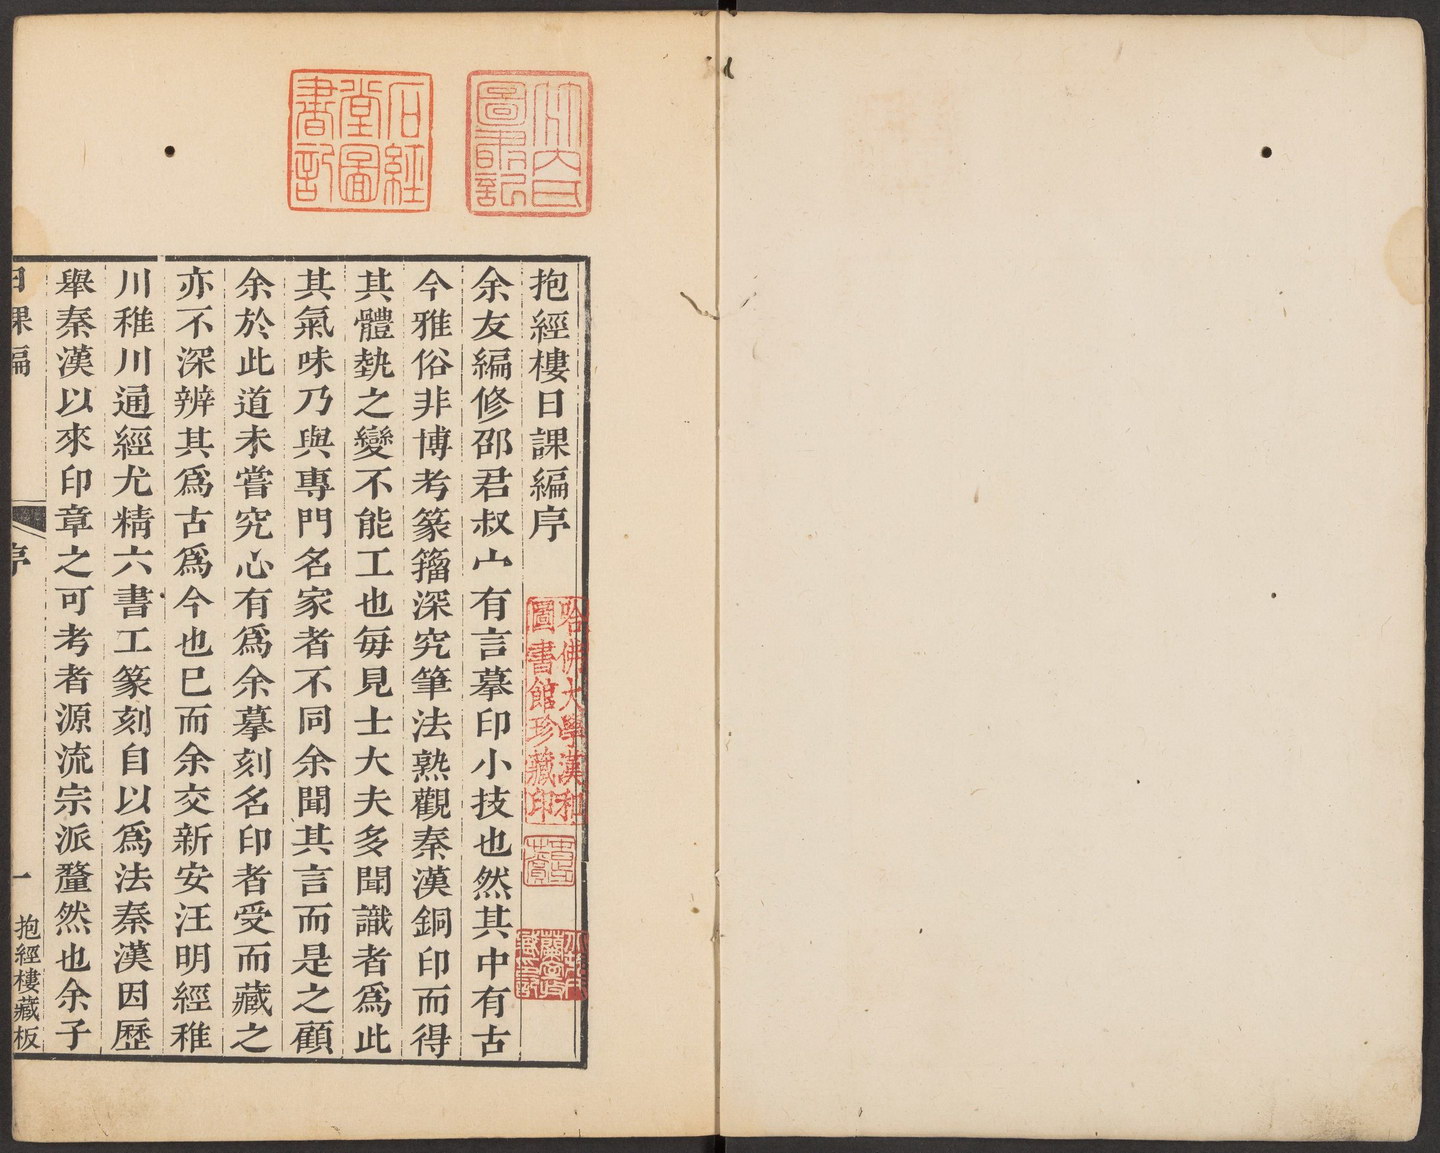 石經堂圖書記
抱經樓日課編序
余友編修邵君叔宀有言摹印小技也然其中有古
今雅俗非博考篆籀深究筆法熟觀秦漢銅印而得
其體埶之變不能工也每見士大夫多聞識者爲此
其氣味乃與專門名家者不同余聞其言而是之顧
余於此道未嘗究心有爲余摹刻名印者受而藏之
亦不深辨其爲古爲今也巳而余交新安汪明經稚
川稚川通經尤精六書工篆刻自以爲法秦漢因歷
舉秦漢以來印章之可考者源流宗派釐然也余子
日課編
序
一
抱經樓藏板
哈佛大學漢和
圖書館珍藏印